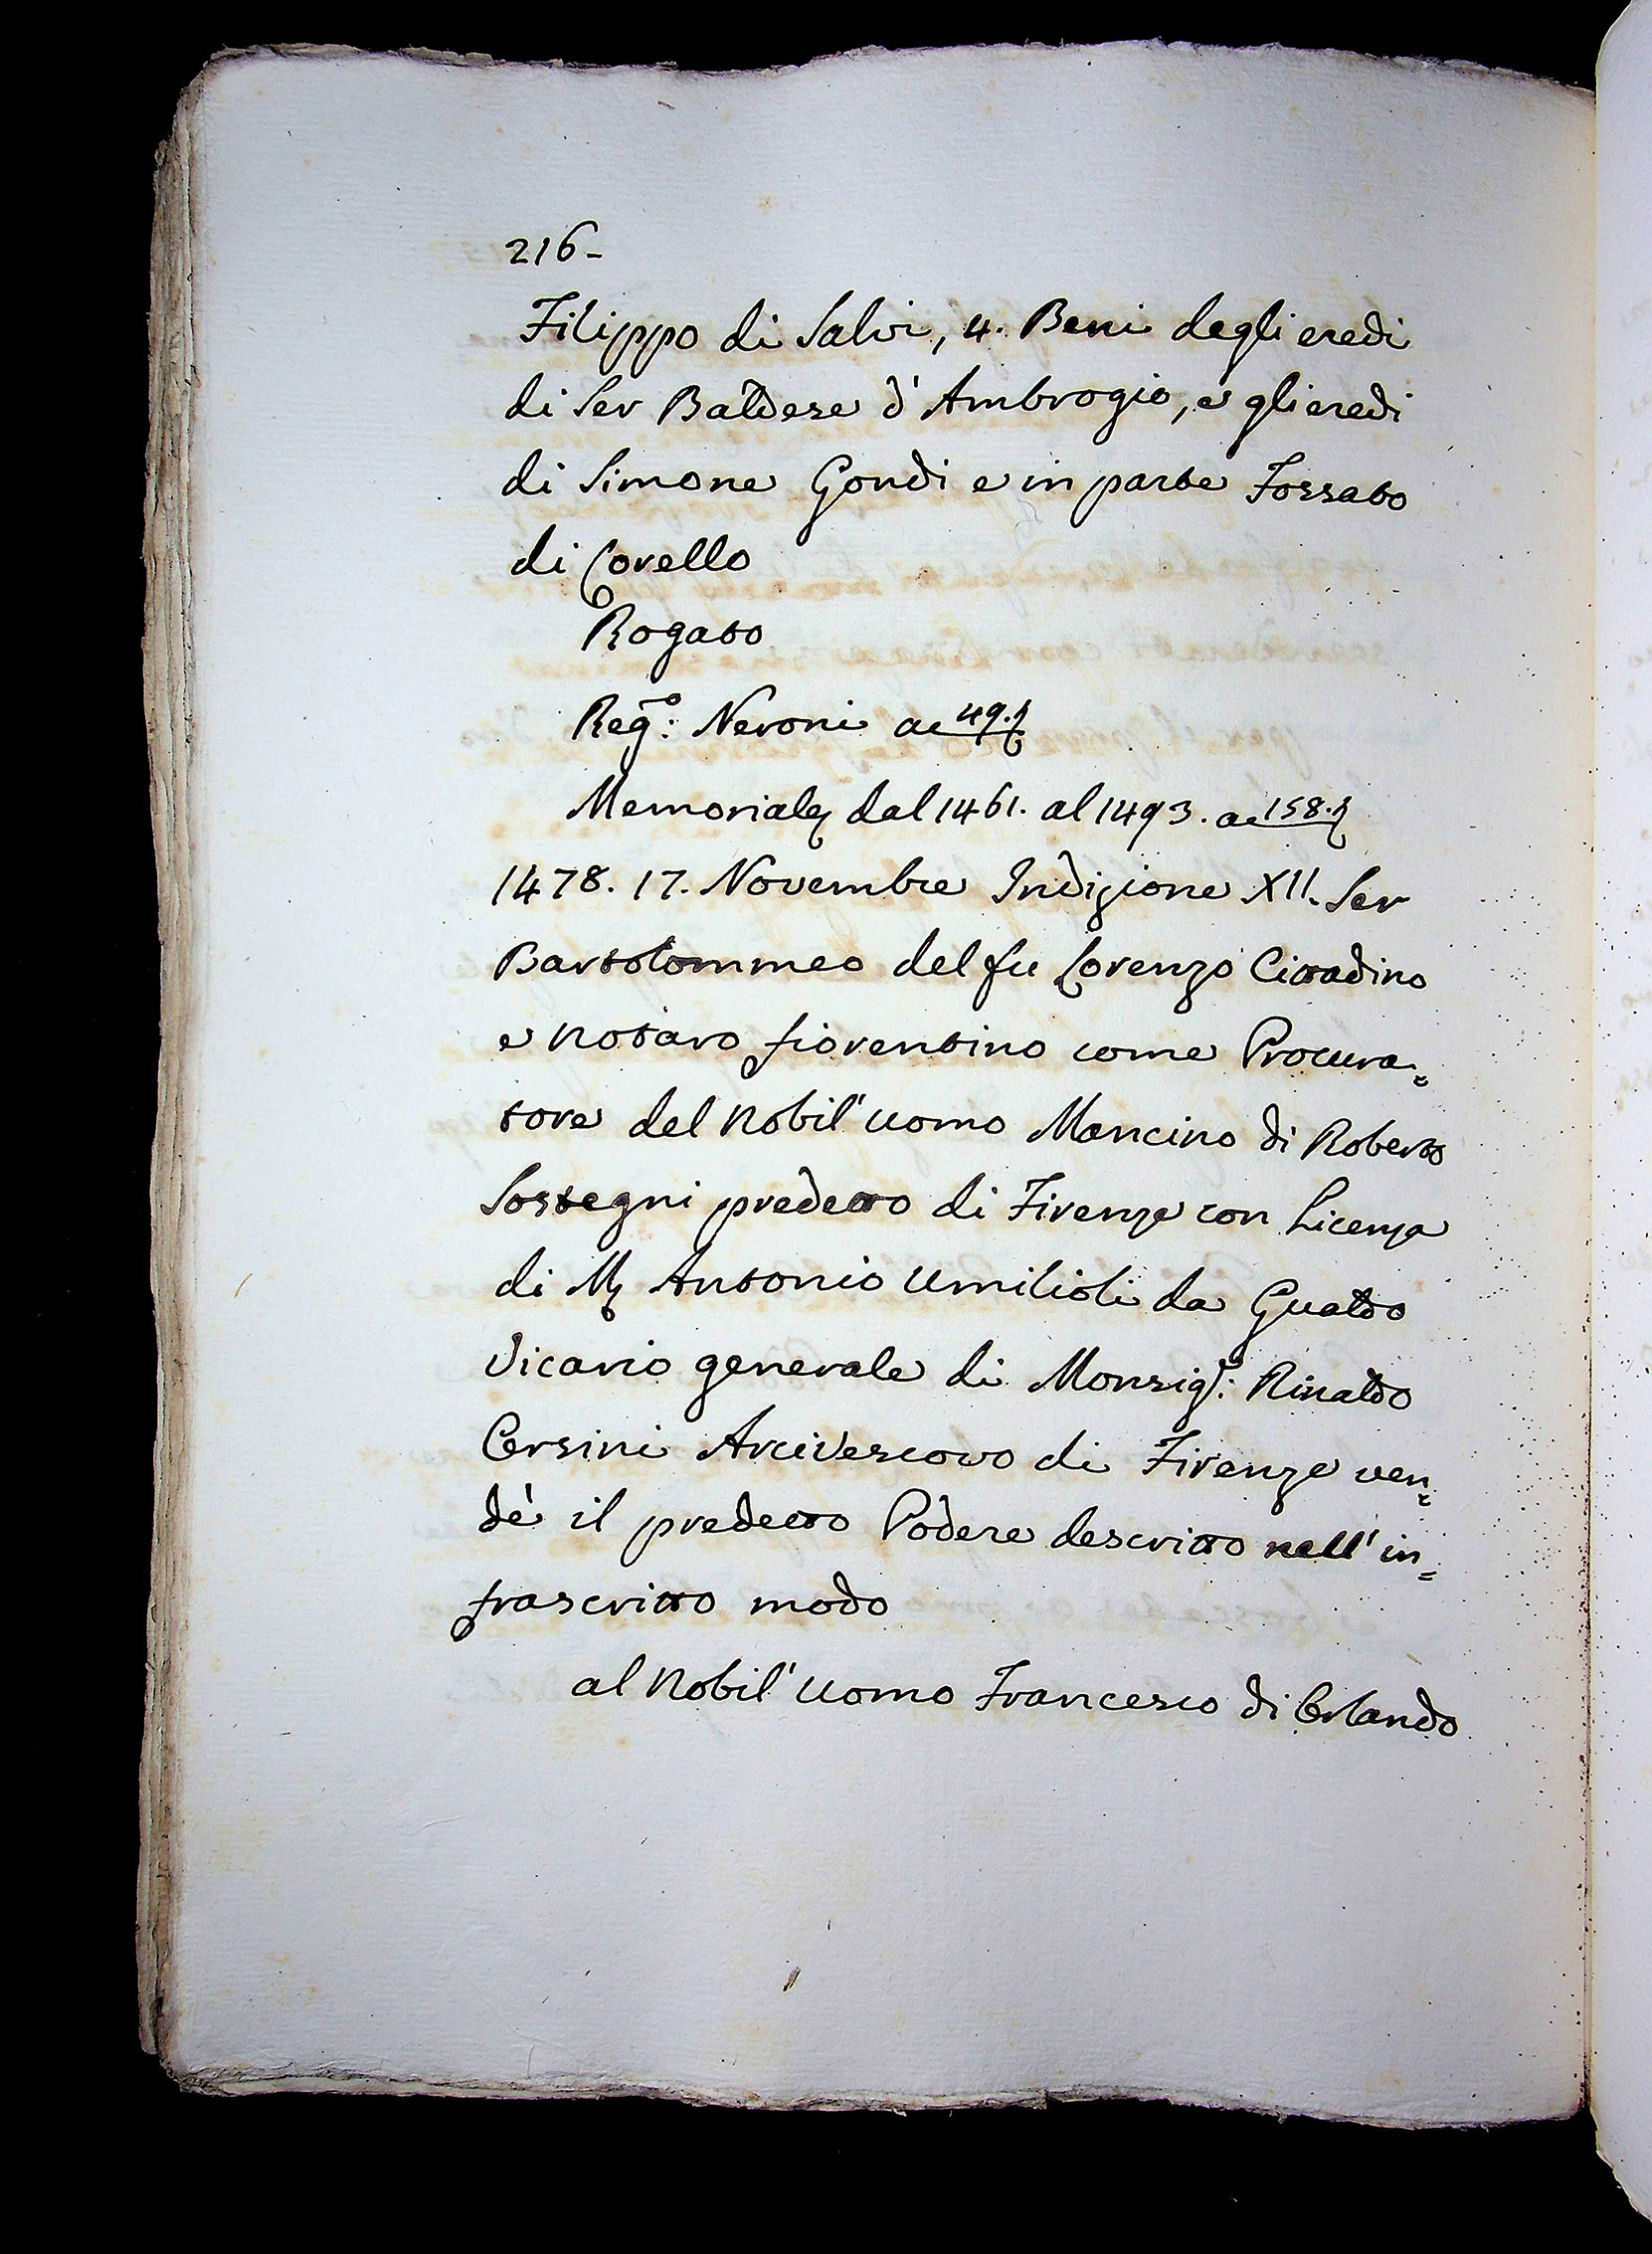 216-
Filippo di Salvi, 4. Beni degli eredi
di Ser Baldese d'Ambrogio, e gli eredi
di Simone Gondi e in parte Fossato
di Covello
Rogato
Reg.o: Neroni a 49.
Memoriale dal 1461. al 1493. a 158.
1478. 17. Novembre Indizione XII. Ser
Bartolommeo del fu Lorenzo Cittadino
e Notaro fiorentino come Procura=
tore del Nobil'uomo Mancino di Roberto
Sostegni predetto di Firenze con Licenza
di M. Antonio Umilioli da Gualdo
Vicario generale di Monsig.r: Rinaldo
Orsini Arcivescovo di Firenze ven=
dè il predetto Podere descritto nell'in=
frascritto modo
al Nobil'uomo Francesco di Orlando